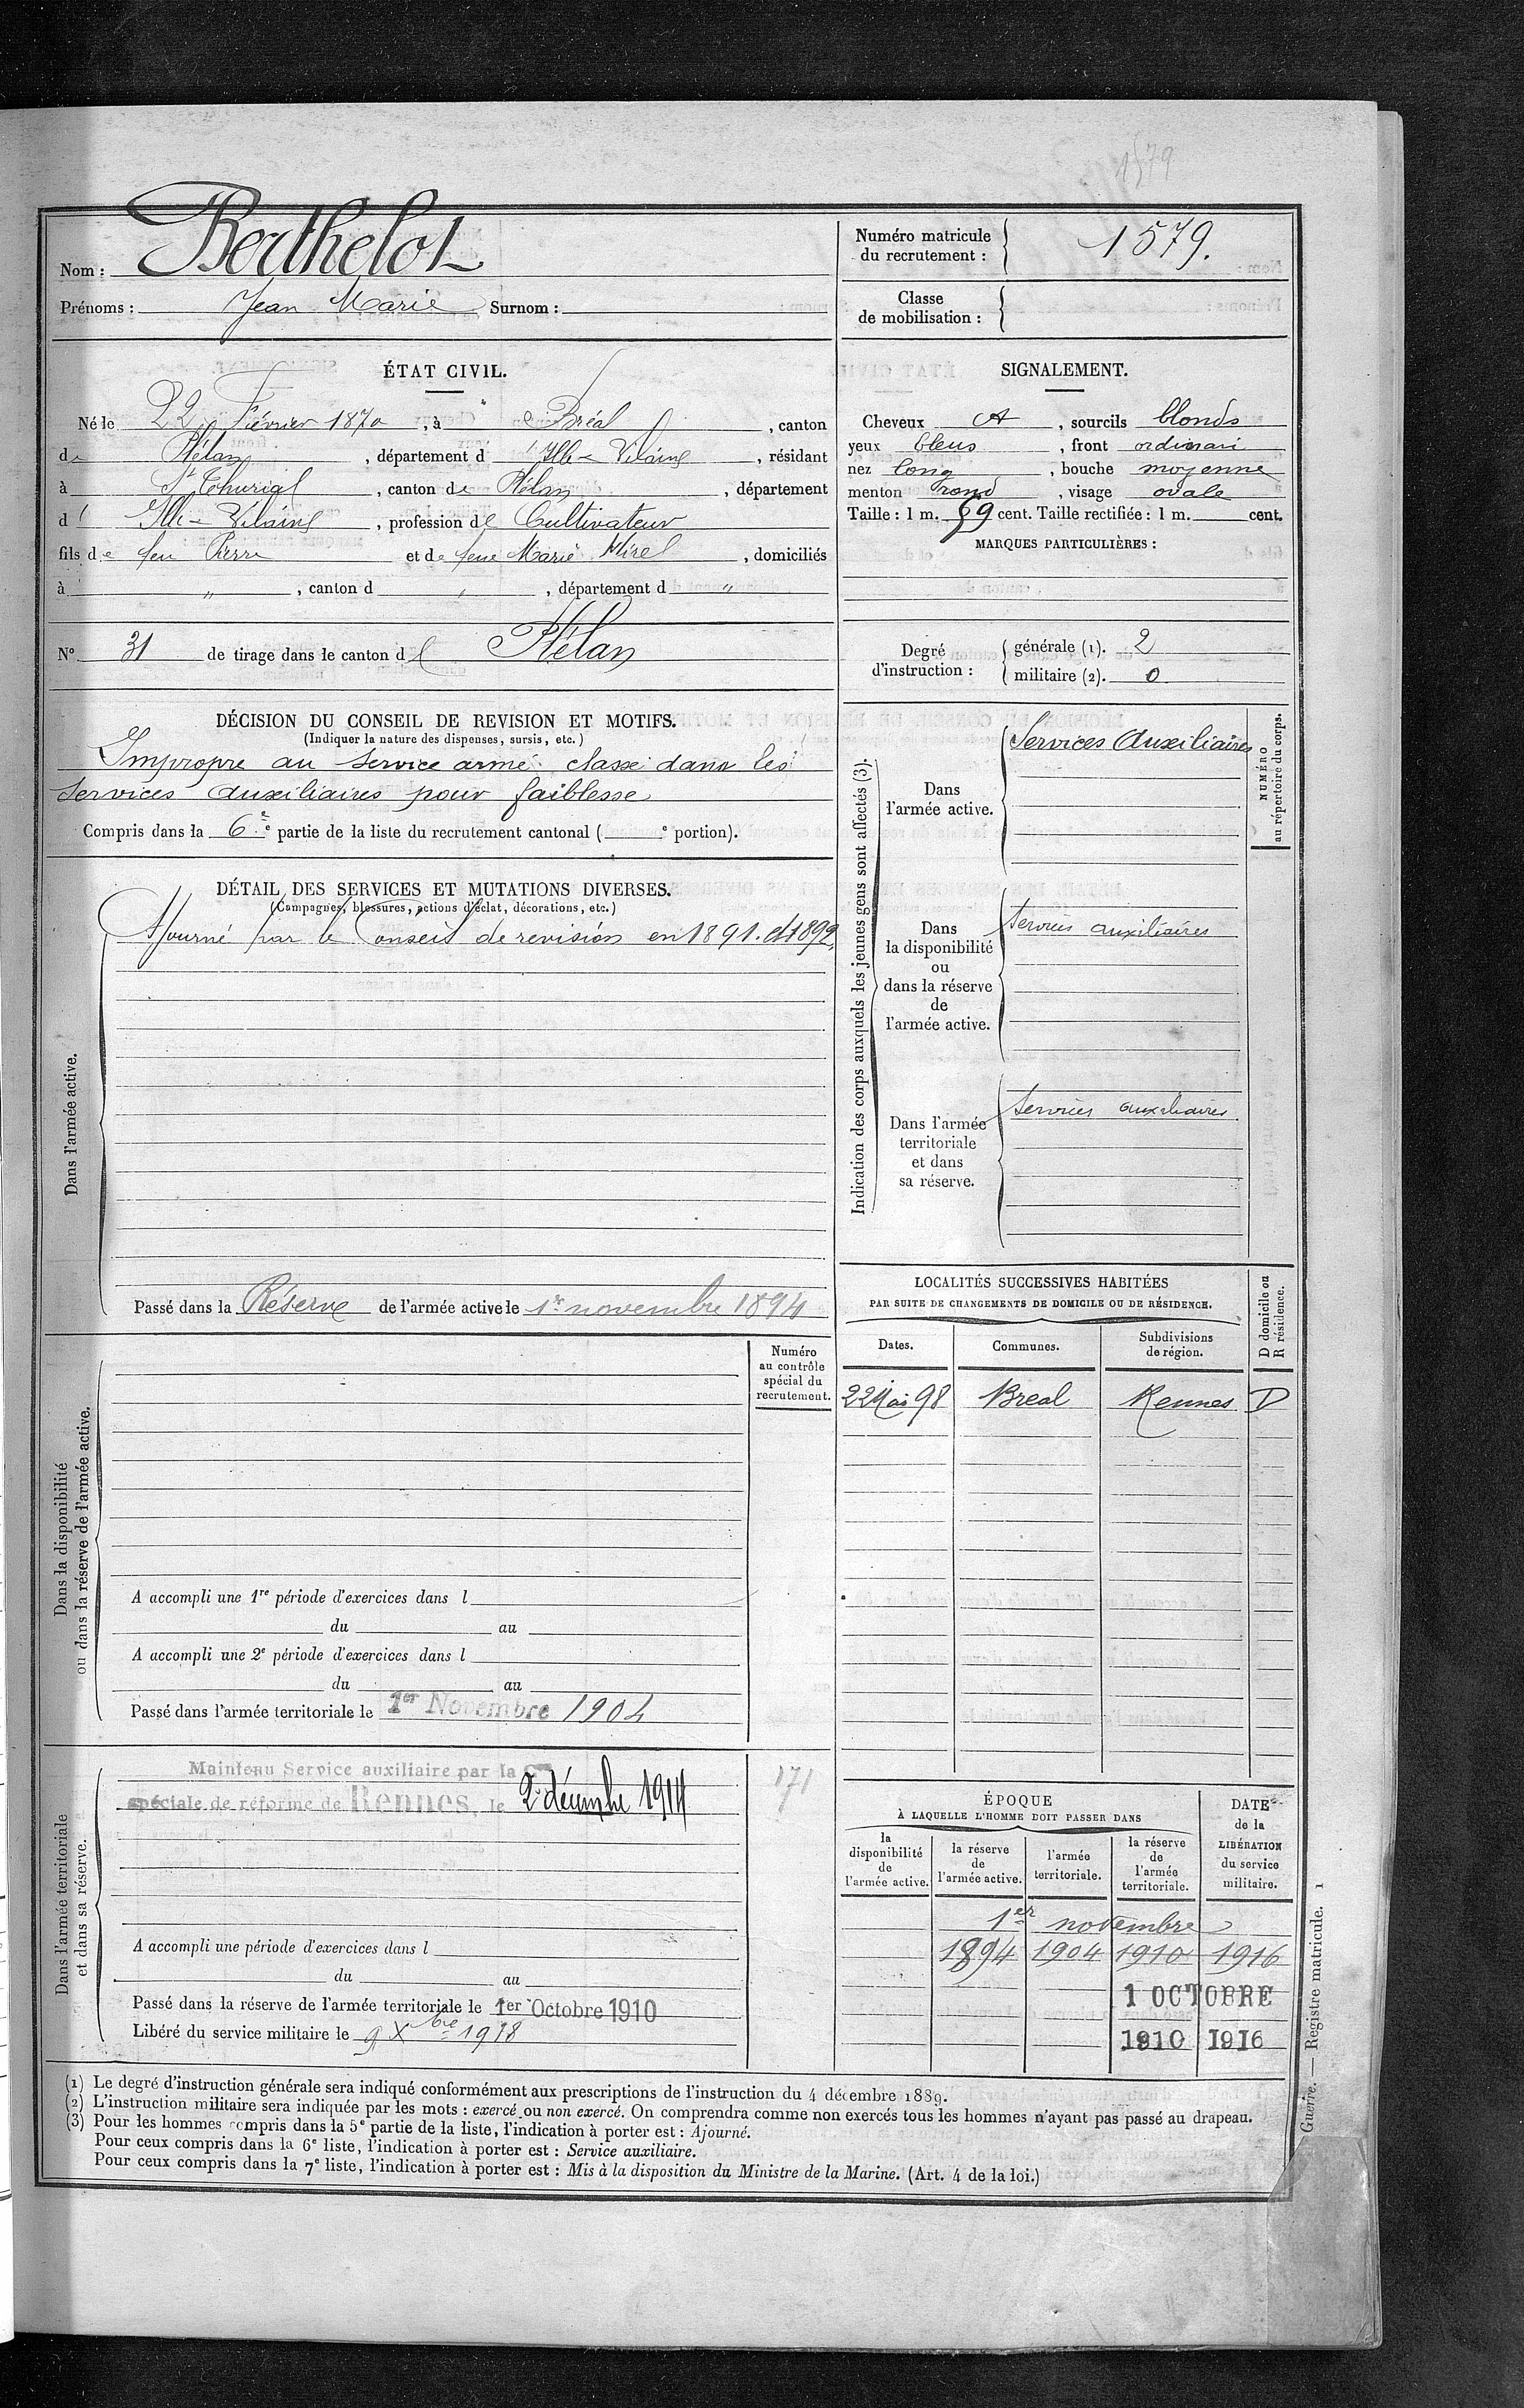 1579
Nom : Berthelot
Prénoms : Jean Marie Surnom :
Numéro matricule
du recrutement : 1579.
Classe
de mobilisation :
ÉTAT CIVIL.
Né le 22 Février 1870, à Bréal, canton
de Plélan, département d'Ille-Vilaine, résidant
à St Thurial, canton de Plélan, département
d' Ille-Vilaine, profession de Cultivateur
fils de feu Pierre et de feue Marie, domiciliés
à " , canton d " , département d "
No 31 de tirage dans le canton de Plélan
SIGNALEMENT.
Cheveux et, sourcils blonds
yeux bleus, front ordinari
nez long, bouche moyenne
menton rond, visage ovale
Taille : 1 m. 59 cent. Taille rectifiée : 1 m. cent.
MARQUES PARTICULIÈRES :
Degré
d'instruction :
générale (1). 2
militaire (2). 0
DÉCISION DU CONSEIL DE REVISION ET MOTIFS.
(Indiquer la nature des dispenses, sursis, etc.)
Impropre au service armé classé dans les
services auxiliaires pour faiblesse
Compris dans la 6e e partie de la liste du recrutement cantonal ( e portion).
DÉTAIL DES SERVICES ET MUTATIONS DIVERSES.
(Campagnes, blessures, actions d'éclat, décorations, etc.)
Dans l'armée active.
Ajourné par le Conseil de revision en 1891. et 1892
Passé dans la Réserve de l'armée active le 1er novembre 1894
Indication des corps auxquels les jeunes gens sont affectés (3).
Dans
l'armée active.
Services Auxiliaires
NUMÉRO
au répertoire du corps.
Dans
la disponibilité
ou
dans la réserve
de
l'armée active.
Services auxiliaires
Dans l'armée
territoriale
et dans
sa réserve.
Services auxiliaires
LOCALITÉS SUCCESSIVES HABITÉES
PAR SUITE DE CHANGEMENTS DE DOMICILE OU DE RÉSIDENCE.
D domicile ou
R résidence.
Dates. Communes. Subdivisions
de région.
22 Mai 98 Breal Rennes D
Dans la disponibilité
ou dans la réserve de l'armée active.
Numéro
au contrôle
spécial du
recrutement.
A accompli une 1re période d'exercices dans l
du au
A accompli une 2e période d'exercices dans l
du au
Passé dans l'armée territoriale le 1er Novembre 1904
Dans l'armée territoriale
et dans sa réserve.
Maintenu Service auxiliaire par la Con
spéciale de réforme de Rennes, le 2 décembre 1914
171
A accompli une période d'exercices dans l
du au
Passé dans la réserve de l'armée territoriale le 1er Octobre 1910
Libéré du service militaire le 9 Xbre 1918
ÉPOQUE
À LAQUELLE L'HOMME DOIT PASSER DANS
la
disponibilité
de
l'armée active.
la réserve
de
l'armée active.
l'armée
territoriale.
la réserve
de
l'armée
territoriale.
DATE
de la
LIBÉRATION
du service
militaire.
1er novembre
1894 1904 1910 1916
1 OCTOBRE
1910 1916
(1) Le degré d'instruction générale sera indiqué conformément aux prescriptions de l'instruction du 4 décembre 1889.
(2) L'instruction militaire sera indiquée par les mots : exercé ou non exercé. On comprendra comme non exercés tous les hommes n'ayant pas passé au drapeau.
(3) Pour les hommes compris dans la 5e partie de la liste, l'indication à porter est : Ajourné.
Pour ceux compris dans la 6e liste, l'indication à porter est : Service auxiliaire.
Pour ceux compris dans la 7e liste, l'indication à porter est : Mis à la disposition du Ministre de la Marine. (Art. 4 de la loi.)
Guerre. — Registre matricule. 1